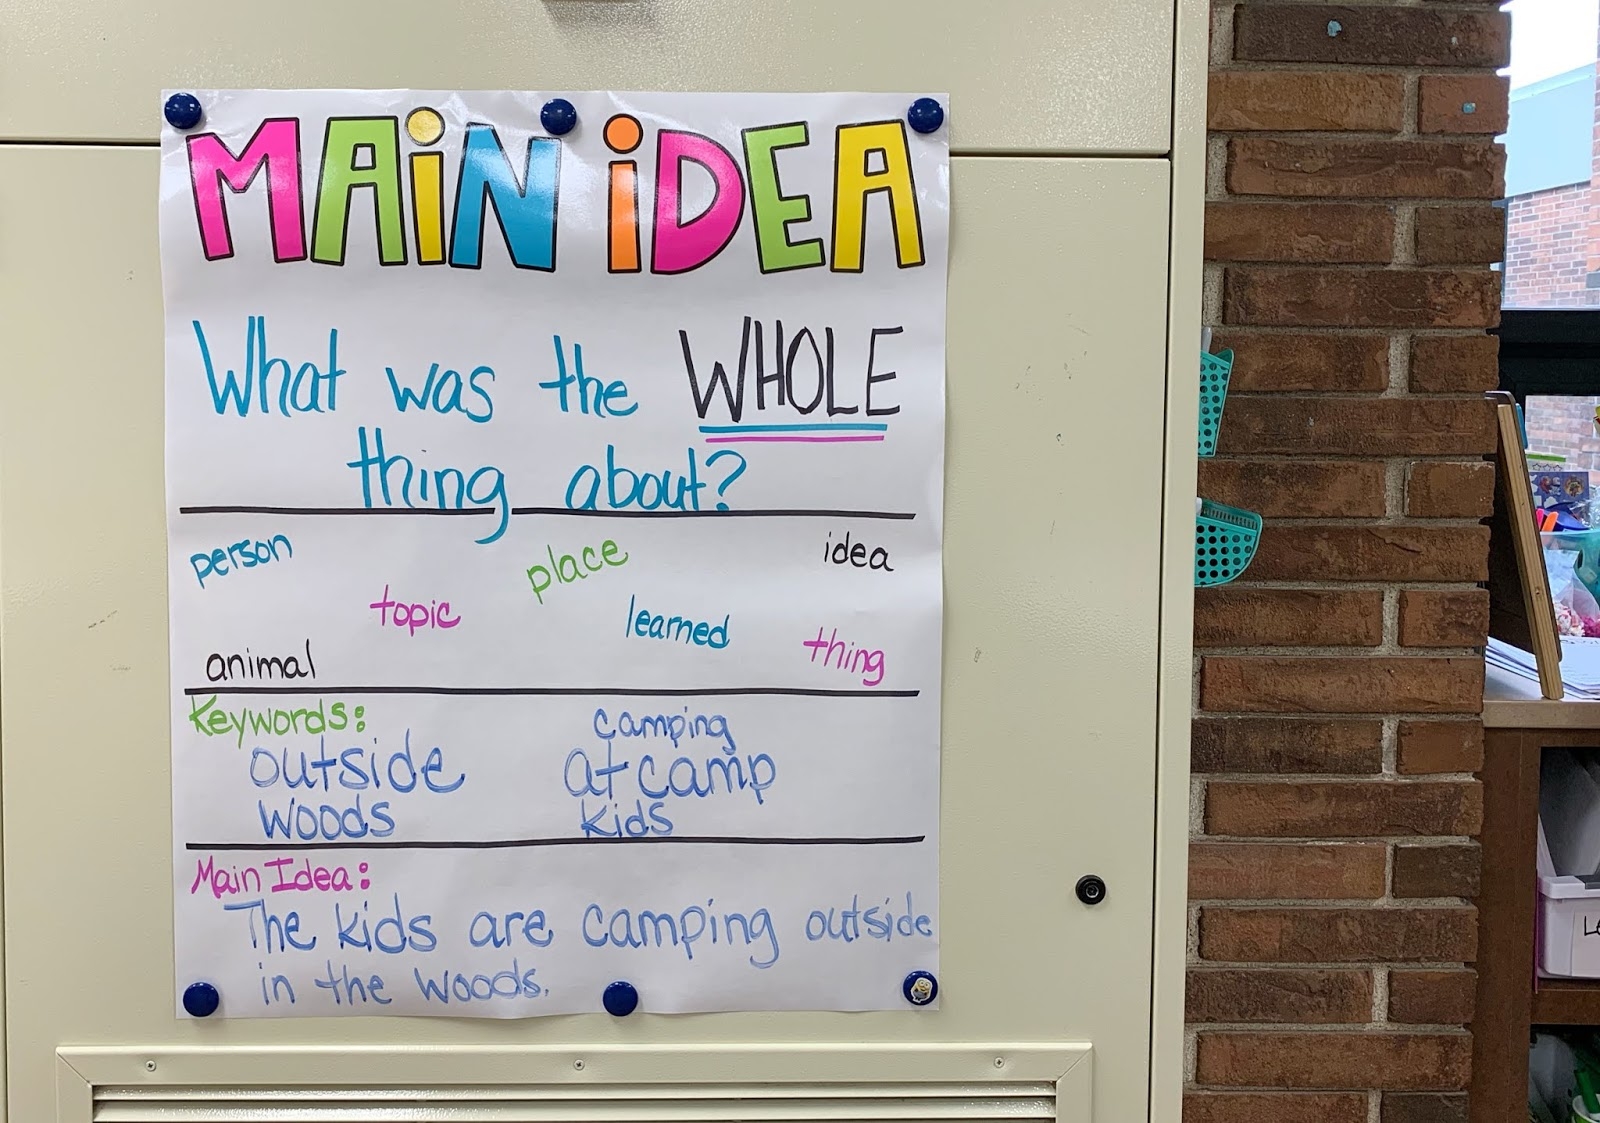 MAIN IDEA
What was the WHOLE
thing about?
person place idea
topic learned
animal thing
Keywords: camping
outside at camp
woods kids
Main Idea:
The kids are camping outside
in the woods.